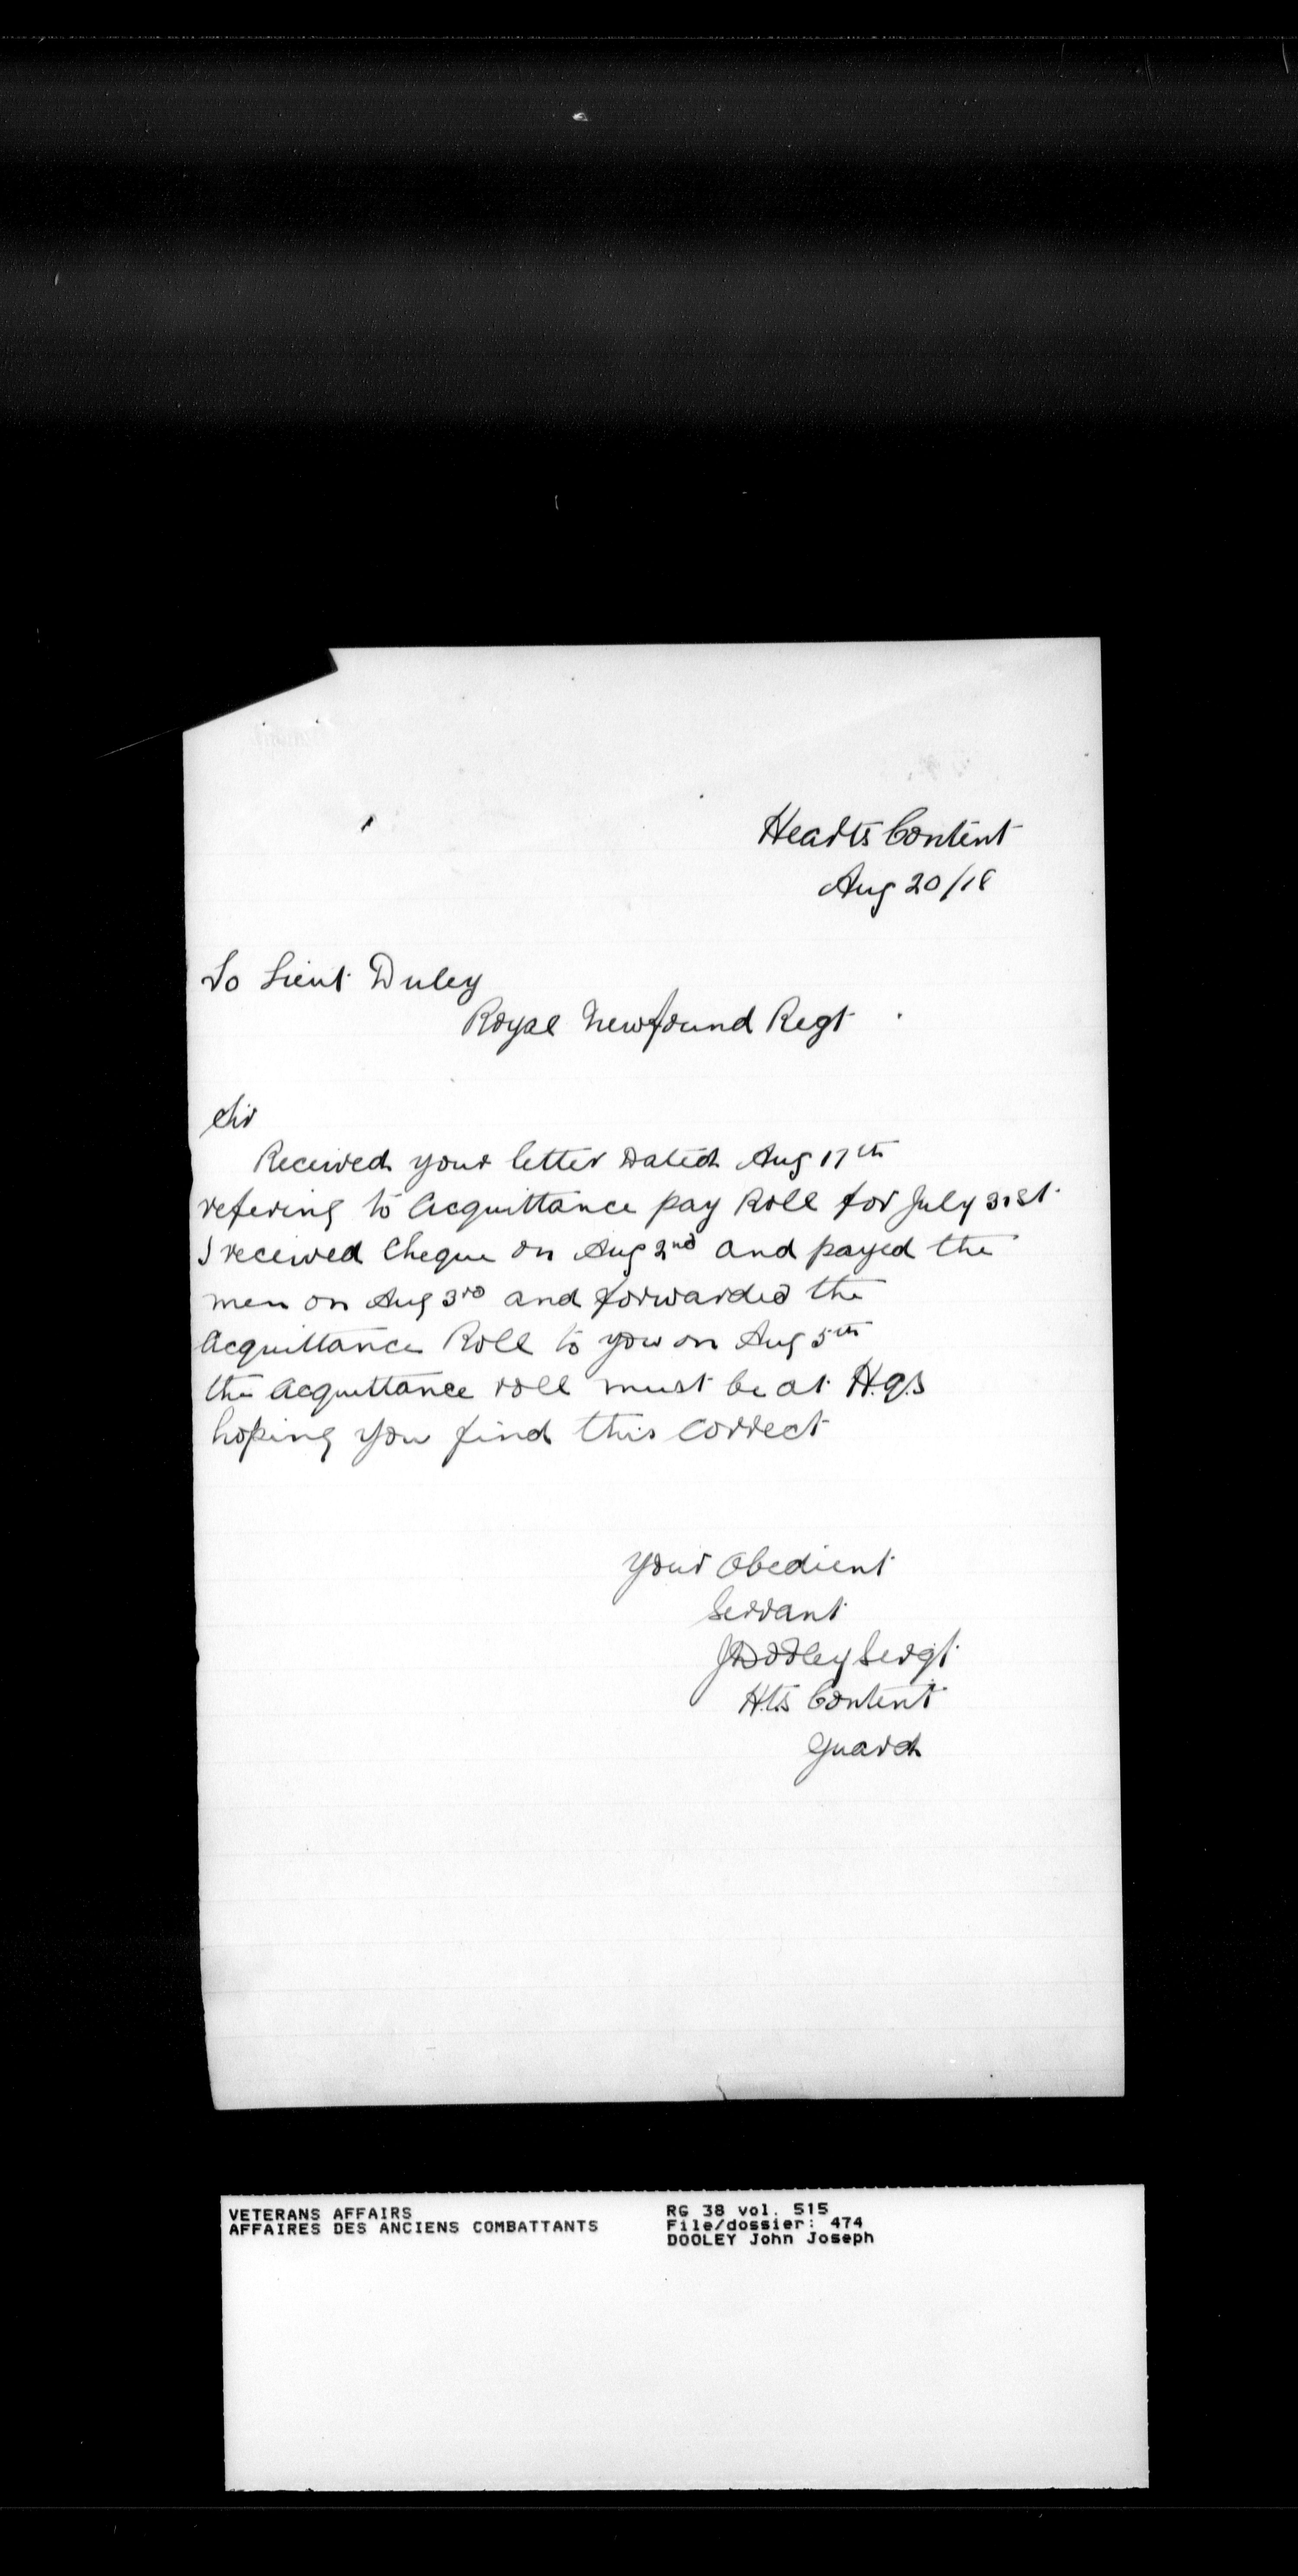 Hearts Content
Aug 20/18
To Lieut Duley
Royal Newfound Regt
Sir
Received your letter Dated Aug 17th
refering to Acquittance pay Roll for July 31st
I received Cheque on Aug 2nd and payed the
men on Aug 3rd and forwarded the
Acquittance Roll to you on Aug 5th
the Acquittance roll must be at H.Q.s
hoping you find this correct
your Obedient
Servant
J Dooley Sergt
Hts Content
Guard
VETERANS AFFAIRS
AFFAIRES DES ANCIENS COMBATTANTS
RG 38 vol. 515
File/dossier: 474
DOOLEY John Joseph